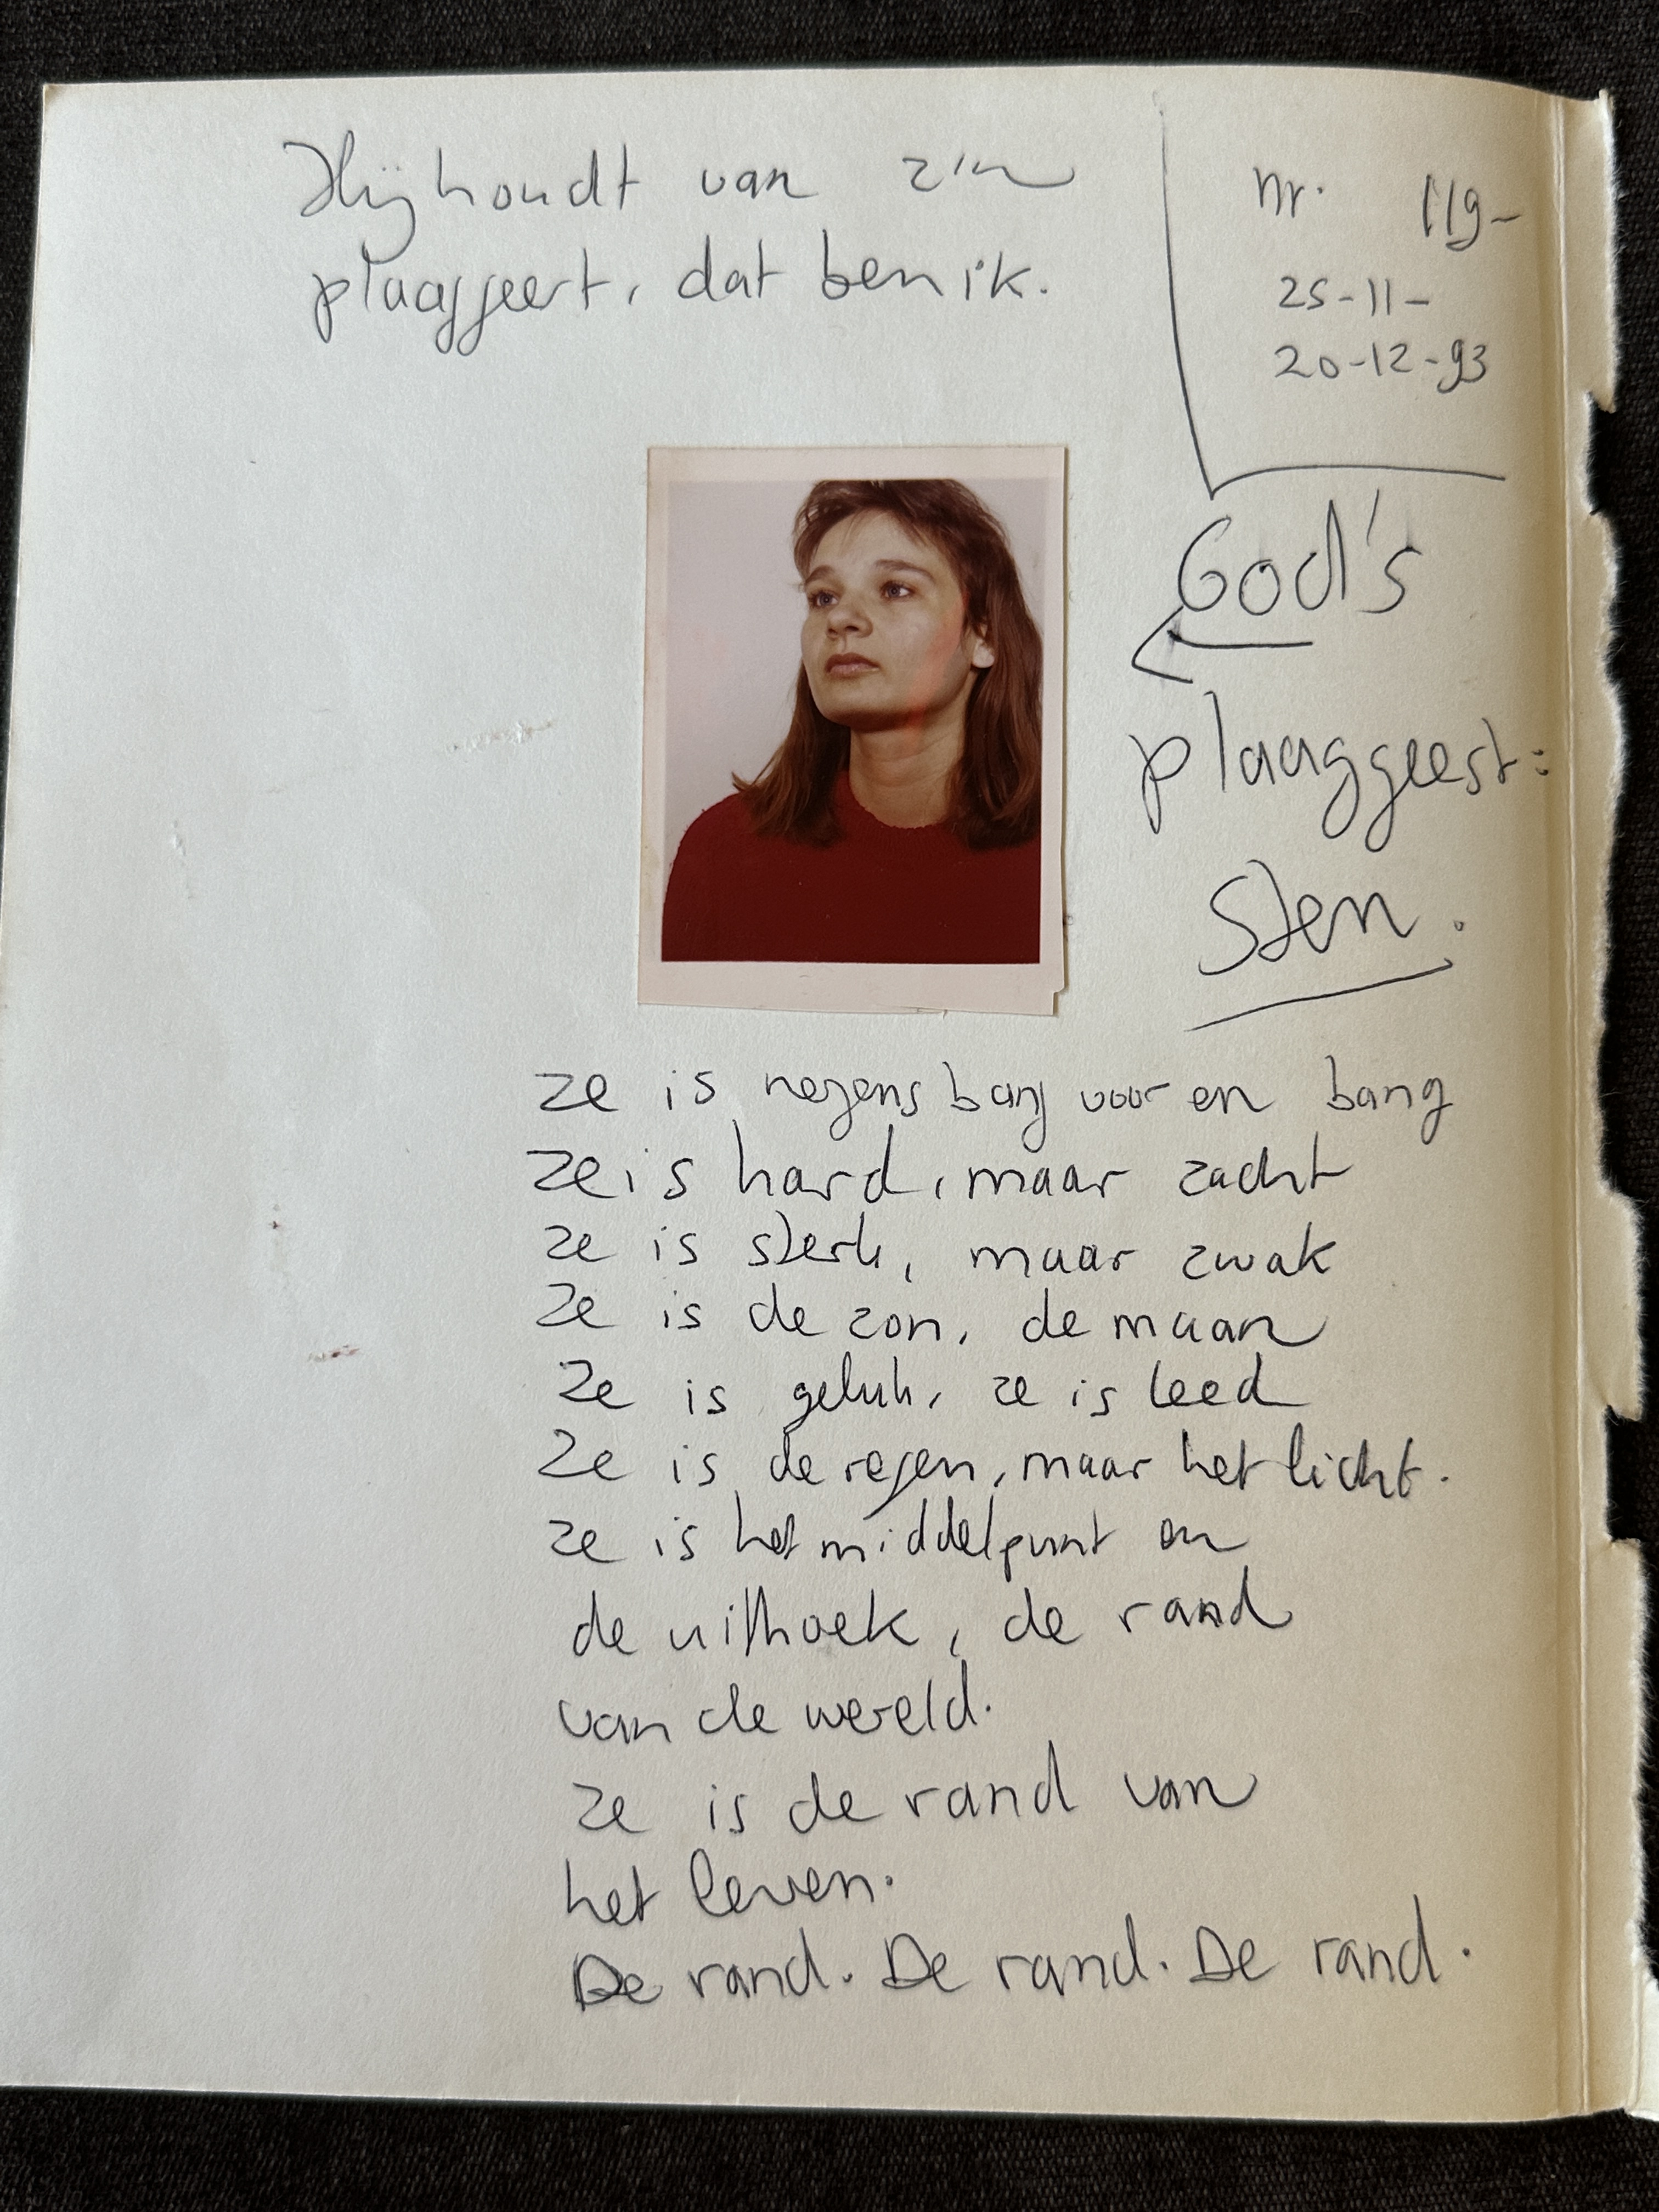 Hij houdt van z'n
plaaggeest, dat ben ik.
nr. 119-
25-11-
20-12-93
God's
plaaggeest:
Sten.
ze is nergens bang voor en bang
ze is hard, maar zacht
ze is sterk, maar zwak
ze is de zon, de maan
ze is geluk, ze is leed
ze is de regen, maar het licht.
ze is het middelpunt en
de uithoek, de rand
van de wereld.
ze is de rand van
het leven.
De rand. De rand. De rand.